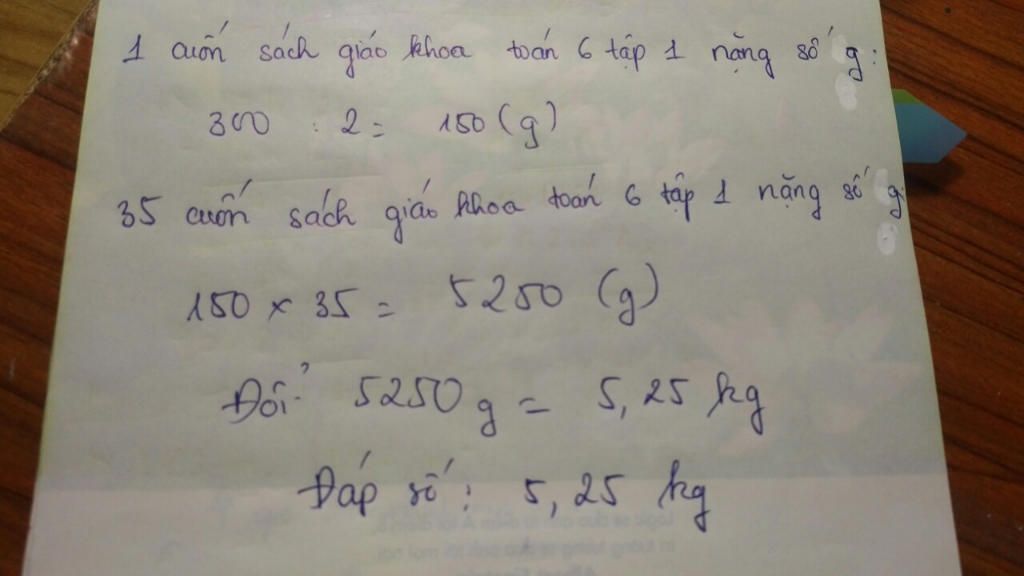 1 cuốn sách giáo khoa toán 6 tập 1 nặng số g:
300 : 2 = 150 (g)
35 cuốn sách giáo khoa toán 6 tập 1 nặng số g:
150 × 35 = 5250 (g)
Đổi: 5250 g = 5,25 kg
Đáp số: 5,25 kg